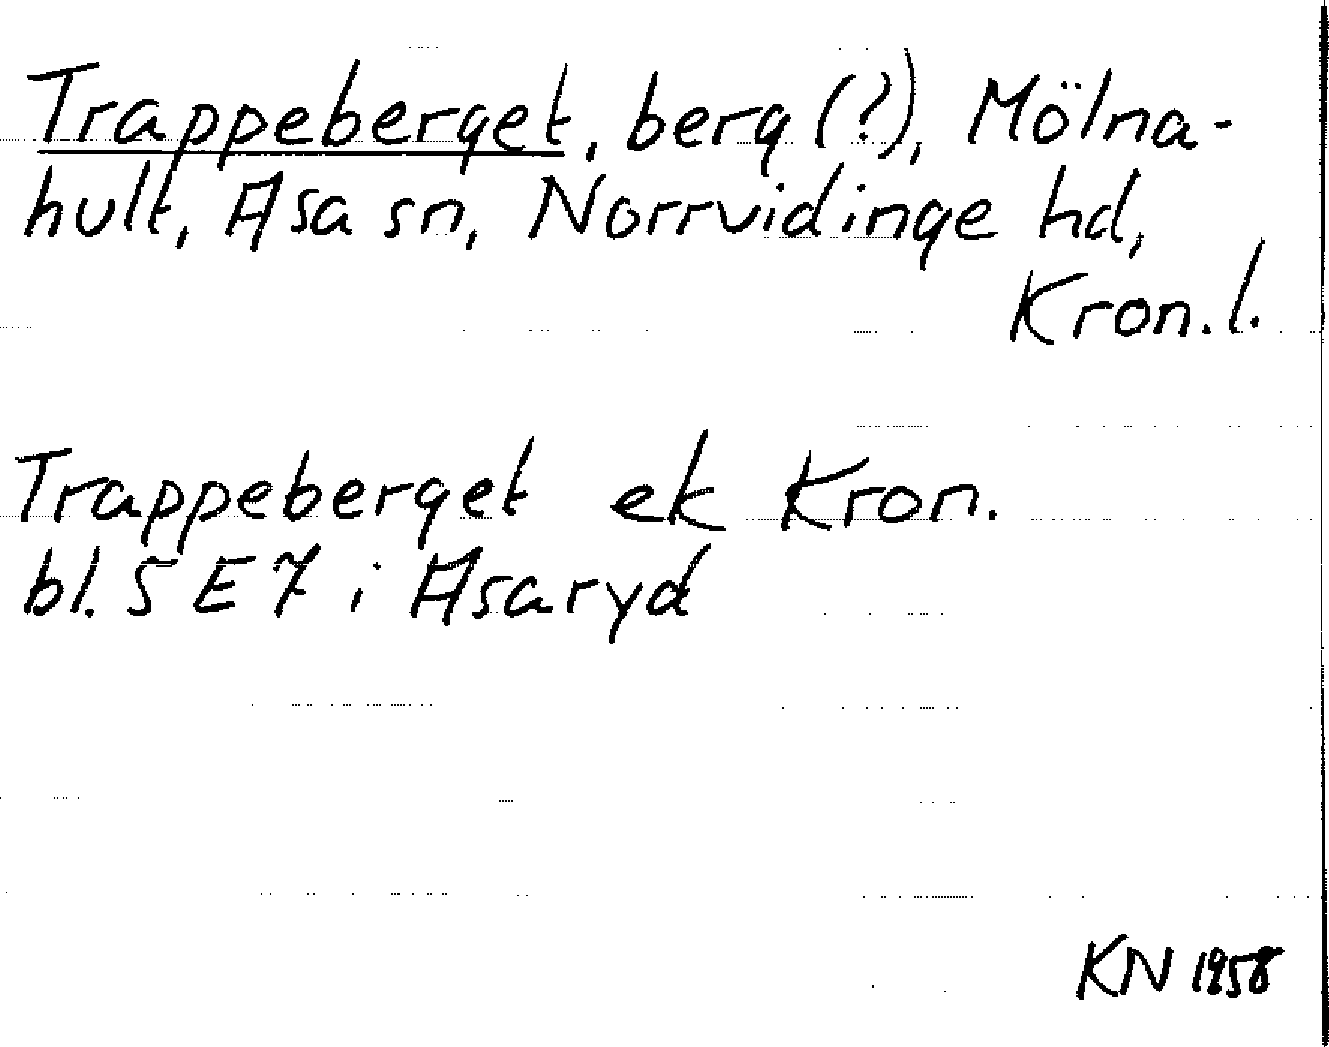 Trappeberget, berg (?), Mölna-
hult, Asa sn, Norrvidinge hd,
Kron. l.
Trappeberget ek Kron.
bl. 5 E 7 i Asaryd
KN 1958